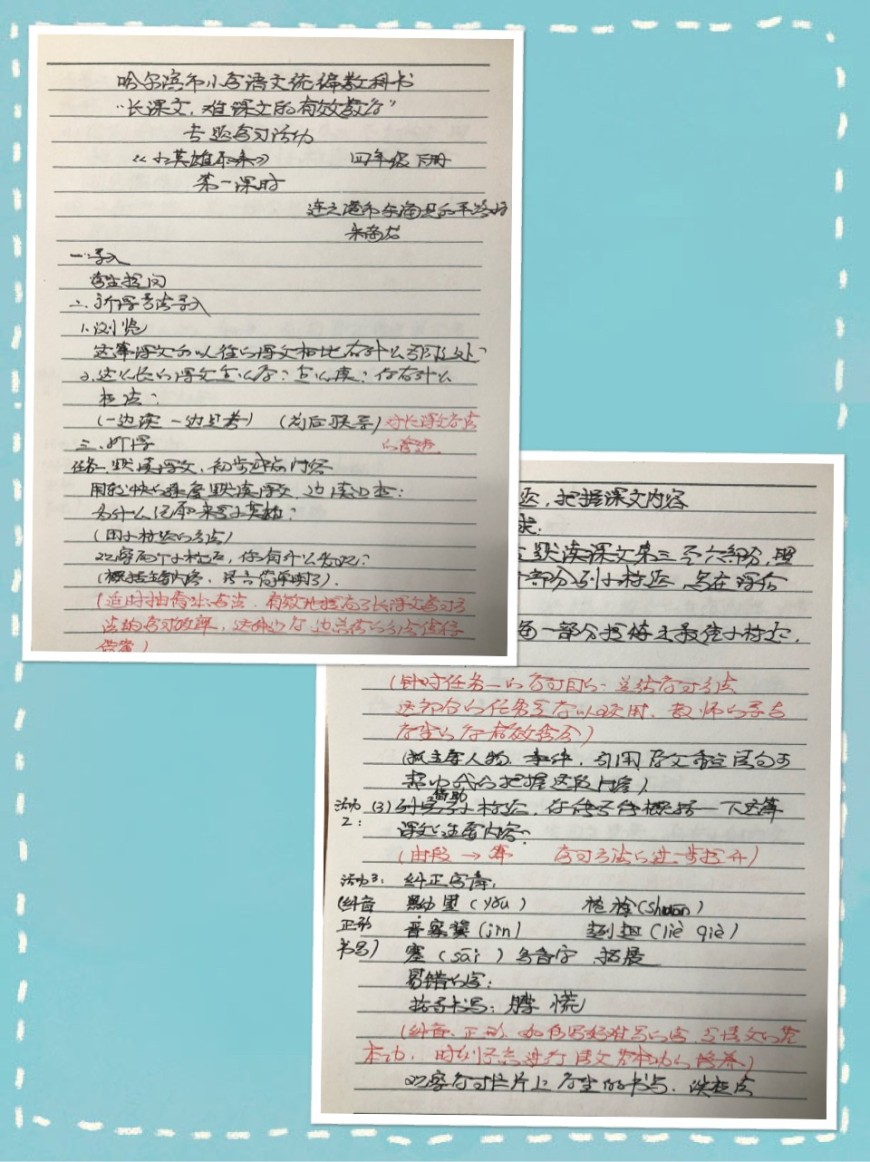 哈尔滨市小学语文统编教科书
"长课文,难课文的有效教学"
专题学习活动
《小英雄雨来》 四年级下册
第一课时
连云港市东海县
一、导入
学生提问
二、新课方法导入
1.浏览
这篇课文和以往的课文相比有什么不同之处?
2.这么长的课文怎么学?怎么读?你有什么
想法?
(一边读 一边思考) (前后联系) 对长课文方法
的
三、新课
任务一、默读课文,初步感知内容
用较快的速度默读课文,边读边想:
为什么说雨来是小英雄?
(用小标题的方法)
观察两个小标题,你有什么发现?
(概括主要内容,语言简单明了).
(适时抽学生方法,有效地提高了长课文学习方
法的学习效率,
借鉴)
题,把握课文内容
求:
默读课文第三至六部分,照
部分列小标题,写在课后
每一部分选择出最佳小标题,
(针对任务一的学习目的,总结学习方法
这部分的任务是学以致用,教师的导与
学生的学有效结合)
(抓主要人物、事件,引用原文重点语句可
帮助我们把握这段内容)
活动2: (3)列 借助小标题,你能不能概括一下这篇
课文的主要内容?
(由段→篇 学习方法的进一步提升)
活动3: 纠正字音,
(纠音 黝黑(yǒu) 枪栓(shuān)
正形 晋察冀(jìn) 趔趄(liè qiè)
书写) 塞(sāi)多音字 拓展
易错的字:
指导书写:膀 慌
(纠音、正形、
本功,时刻不忘进行语文基本功的培养)
观察学习卡片上学生的书写,